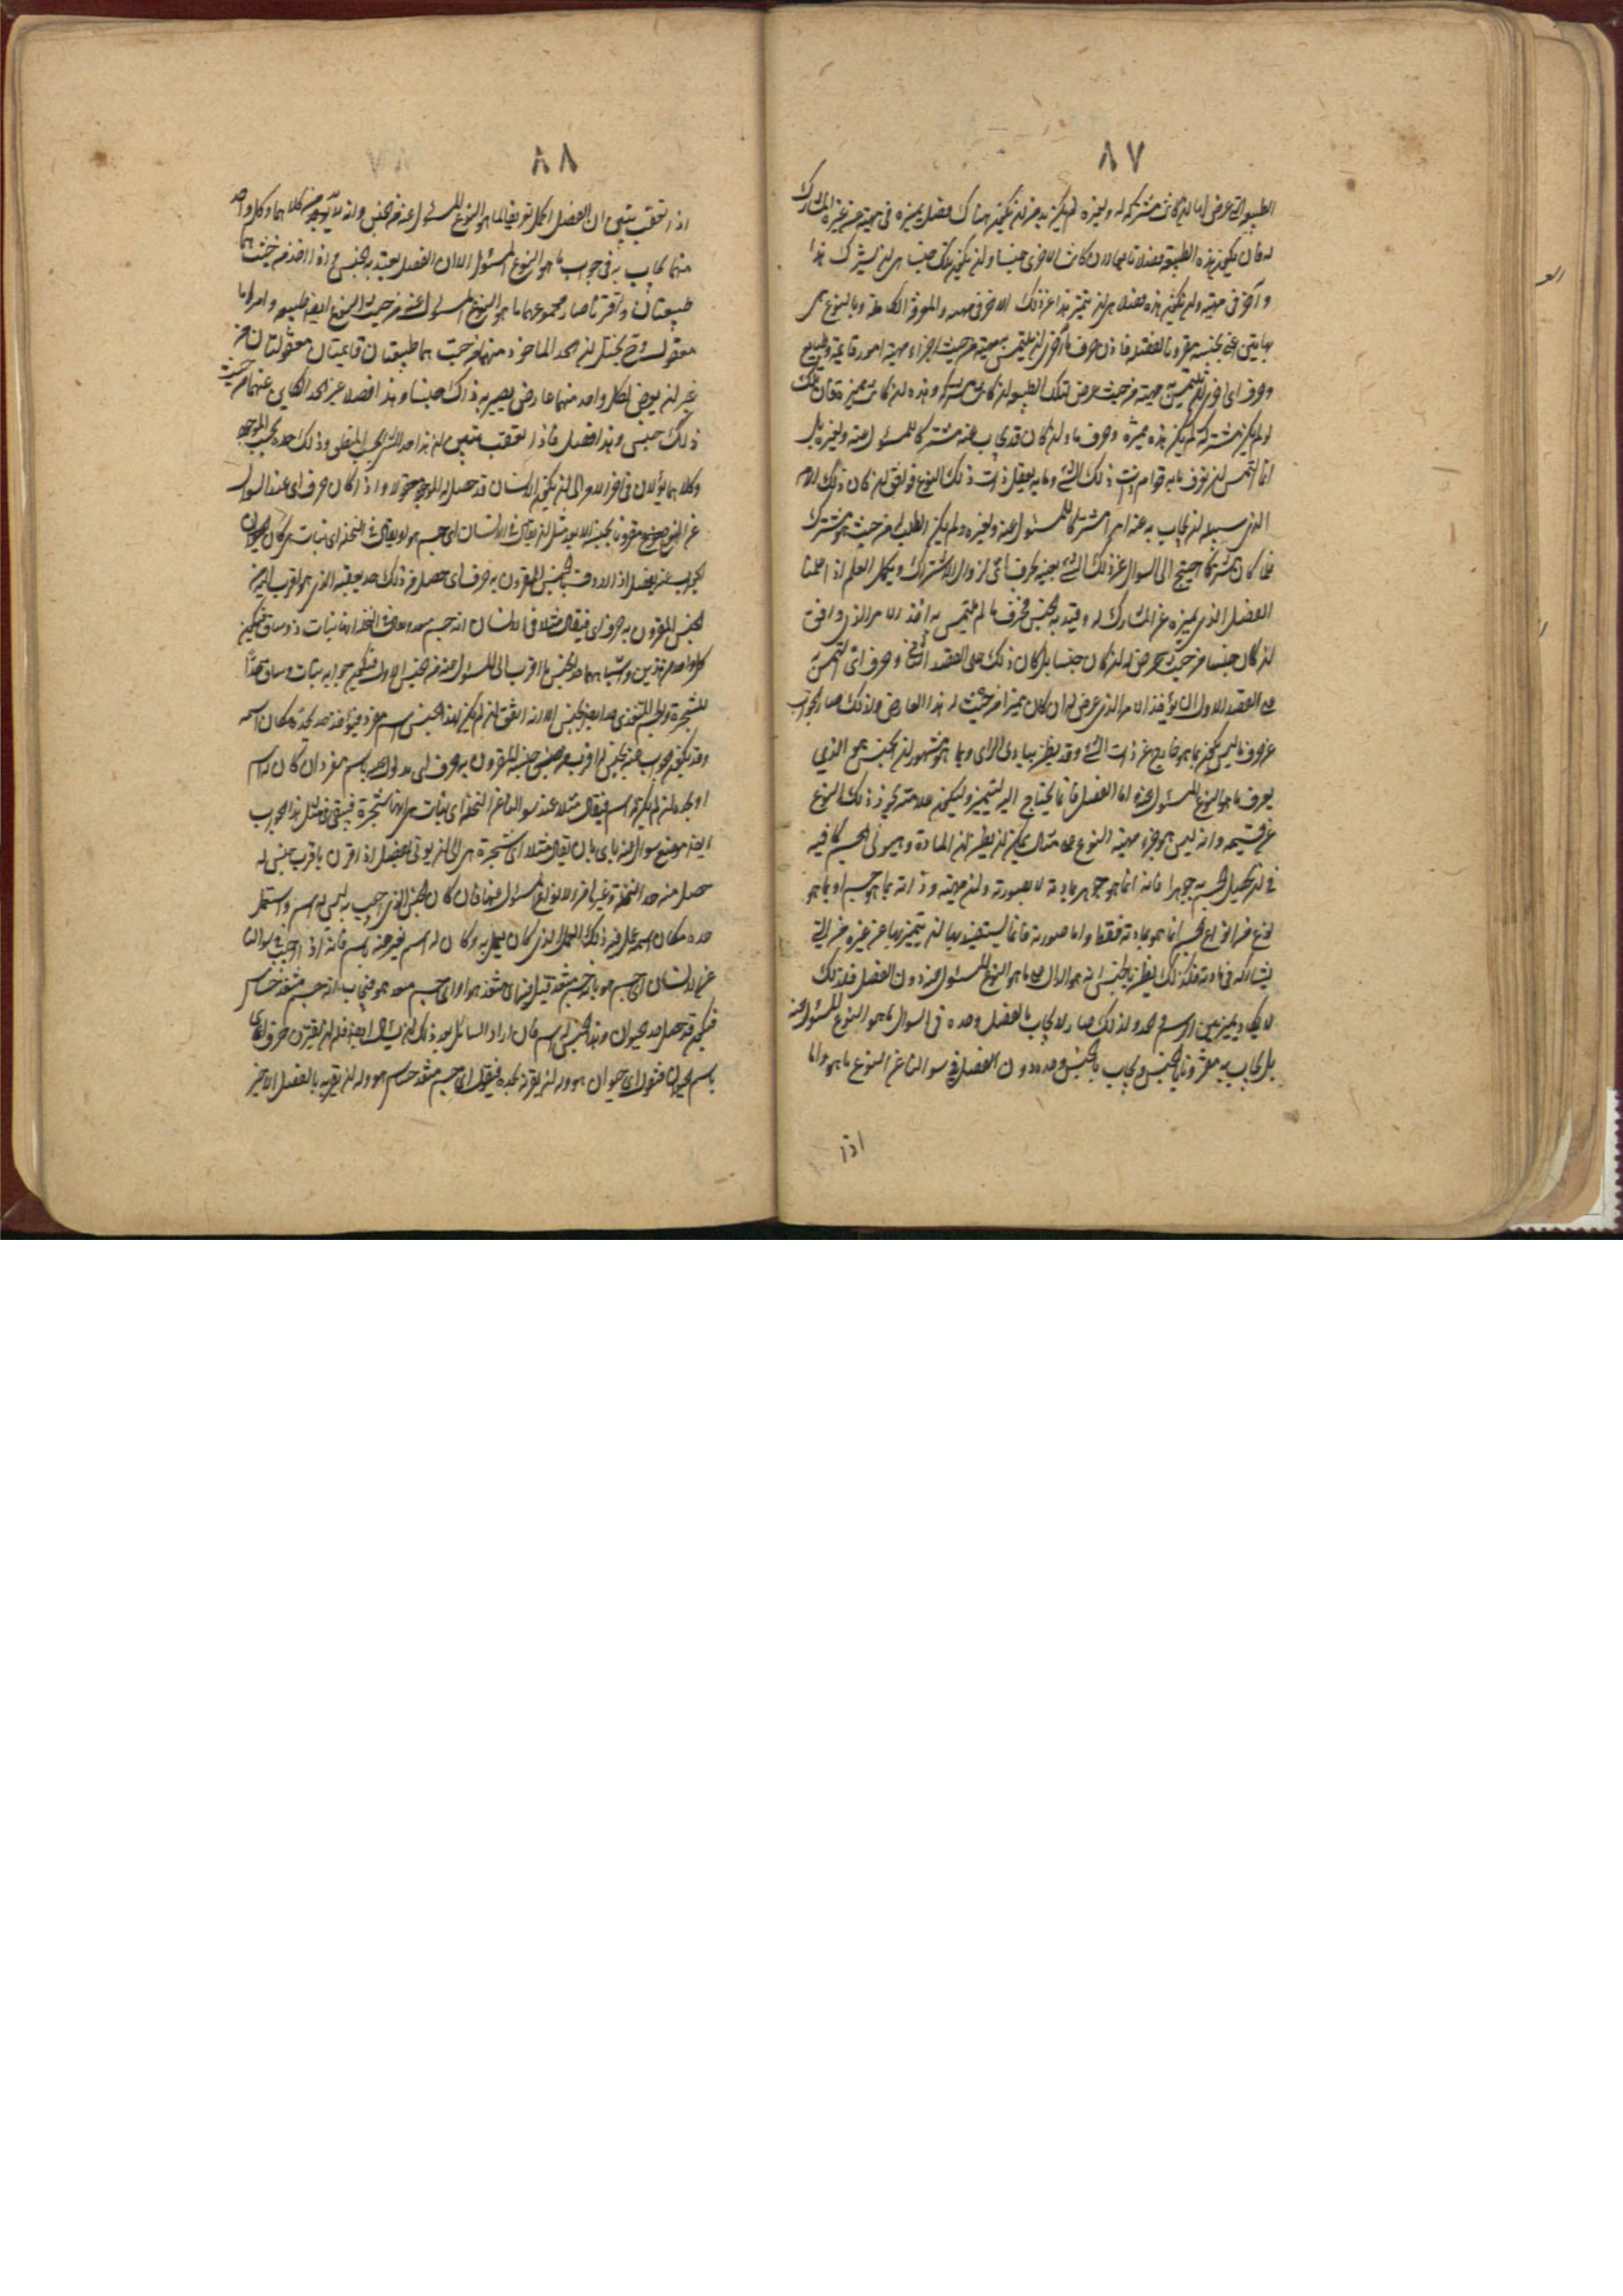 ٨٧
الطبيعة التي عرض لها ان كانت مشتركة له ولغيره لم يكن بد من ان يكون هناك فصل يميزه في مهيته عن غيره المشارك
له فان يكون هذه الطبيعة فصلا
وآخر في مهيته ولم يكن هذه فصلا بل ان يتميز بهذا عن ذلك الآخر في مهيته والمعرفة الكاملة وبالنوع هي
بهاتين اعني بجنسه مقرونا بالفصل فاذن حرف ما آخرى ان يلتمس به مهيته من حيث اجزاء مهيته امور قائمة وطبايع
وحرف اي اخرى ان يلتمس مهيته من حيث عرض لتلك الطبيعة ان كانت مشتركة وهذه ان كانت مميزة فان تلك
لو لم يكن مشتركة لم يكن هذه مميزة وحرف ما وان كان قد يجاب عنه مشتركا للمسئول عنه ولغيره بل
انما التمس ان نعرف ما به قوام ذات ذلك الشئ وما به يعقل ذات ذلك النوع فوافق ان كان ذلك الامر
الذي سبيله ان يجاب به عنه امرا مشتركا للمسئول عنه ولغيره ولم يكن الطلب له من حيث هو مشترك
فلما كان مشتركا احتيج الى السؤال عن ذلك الشئ بعينه بحرف اي لزوال الاشتراك ويكمل العلم اذا علمنا
الفصل الذي يميزه عن المشارك له وقيد به الجنس فحرف ما لم يلتمس به اخذ الامر الذي وافق
ان كان جنسا من حيث عرض له ان كان جنسا بل كان ذلك على القصد الثاني وحرف اي التمس به
على القصد الاول ان يؤخذ الامر الذي عرض له ان كان مميزا من حيث له هذا العارض ولذلك صار الجواب
عن حرف ما ليس يكون بما هو خارج عن ذات الشئ وقد يظن ببادي الراى وبما هو مشهور ان الجنس هو الذي
يعرف ما هو النوع المسئول عنه اما الفصل فانما يحتاج اليه ليتميز وليكون علامة تحيز ذلك النوع
عن قسيمه وانه ليس هو جزء مهية النوع على مثال ما يمكن ان يظن ان المادة وهيولى الجسم كافية
في ان يحصل الجسم به جوهرا فانه انما هو جوهر بمادته لا بصورته وان مهيته وذاته بما هو جسم او بما هو
نوع من انواع الجسم انما هو بمادته فقط واما صورته فانما يستفيد بها ان يتميز بها عن غيره من التي
يشاركه في مادته فكذلك يظن بالجنس انه هو الدال على ما هو النوع المسئول عنه دون الفصل فلذلك
لا يكاد يميز بين الرسم والحد ولذلك صار لا يجاب بالفصل وحده في السؤال بما هو النوع المسئول عنه
بل يجاب به مقرونا بالجنس ويجاب بالجنس وحده دون الفصل في سؤالنا عن النوع ما هو واما
اذا
٨٨
اذا تعقب يتبين ان الفصل اكمل تعريفا لما هو النوع المسئول عنه من الجنس
منهما يجاب به في جواب ما هو النوع المسئول الا ان الفصل يقيد به الجنس واذا اخذ من حيث هما
طبيعتان واقترنا صار مجموعهما ما هو النوع المسئول عنه من حيث النوع ايضا طبيعة وامر ما
معقول يحتمل ان الحد الماخوذ منهما من حيث هما طبيعتان قائمتان معقولتان من
غير ان يعرض لكل واحد منهما عارض يصير به ذاك جنسا وهذا فصلا غير الحد الكاين عنهما من حيث
ذلك جنس وهذا فصل فاذا تعقب تبين ان هذا حد الشئ بحسب المنطقي وذلك حده بحسب الموجود
وكلاهما يؤلان في اخر الامر الى ان يكون الانسان قد حصل له الموجود معقولا واذا كان حرف اي عند السؤال
عن النوع مقرونا بجنسه الابعد مثل ان يقال في الانسان اي جسم هو او يقال في النخلة اي نبات هي كان
الجواب عنه بفصل اذا اردفت بالجنس المقرون به حرف اي حصل من ذلك حد بعينه الذي هو اقرب اليه من
الجنس المقرون به حرف اي فيقال مثلا في الانسان انه جسم متغذ وفي النخلة انها نبات ذو ساق فيكون
كل واحد من هذين واشباههما حد الجنس ما اقرب الى المسئول عنه من الجنس الاول فيكون جوابه نبات ذو ساق حدا
للشجرة والجسم المتغذي حدا لجنس الا انه اتفق ان لم يكن لهذا الجنس اسم مفرد فيؤخذ حده مكان اسمه
وقد يكون جواب عنه بجنس له اقرب من جنسه المقرون به حرف اي مدلولا عليه باسم مفرد ان كان له اسم
او بحده ان لم يكن له اسم فيقال مثلا عند سؤالنا عن النخلة اي نبات هي انها شجرة فيبقى في مثل هذا الجواب
ايضا موضع سؤال عنه باي بان يقال مثلا اي شجرة هي الى ان يؤتى بفصل اذا قرن باقرب جنس له
حصل منه حد النخلة او غير ذلك من المسئول عنها فان كان الجنس الذي اجيب به ليس له اسم واستعمل
حده مكان اسمه عمل فيه ذلك العمل الذي كان يعمل به وكان له اسم فيعرف عنه باسم فانه اذا اجيب في سؤالنا
عن الانسان اي جسم هو بانه جسم متغذ قيل فيه اي متغذ هو او اي جسم متغذ هو فيجاب انه جسم متغذ حساس
فيكون قد حصل حد الحيوان وهذا الجنس له اسم فان اراد السائل بعد ذلك ان يسال ايضا فله ان يقرن حرف اي
باسم الحيوان فنقول اي حيوان هو وله ان يقرنه بحده فيقول اي جسم متغذ حساس هو وله ان يقرنه بالفصل الاخير